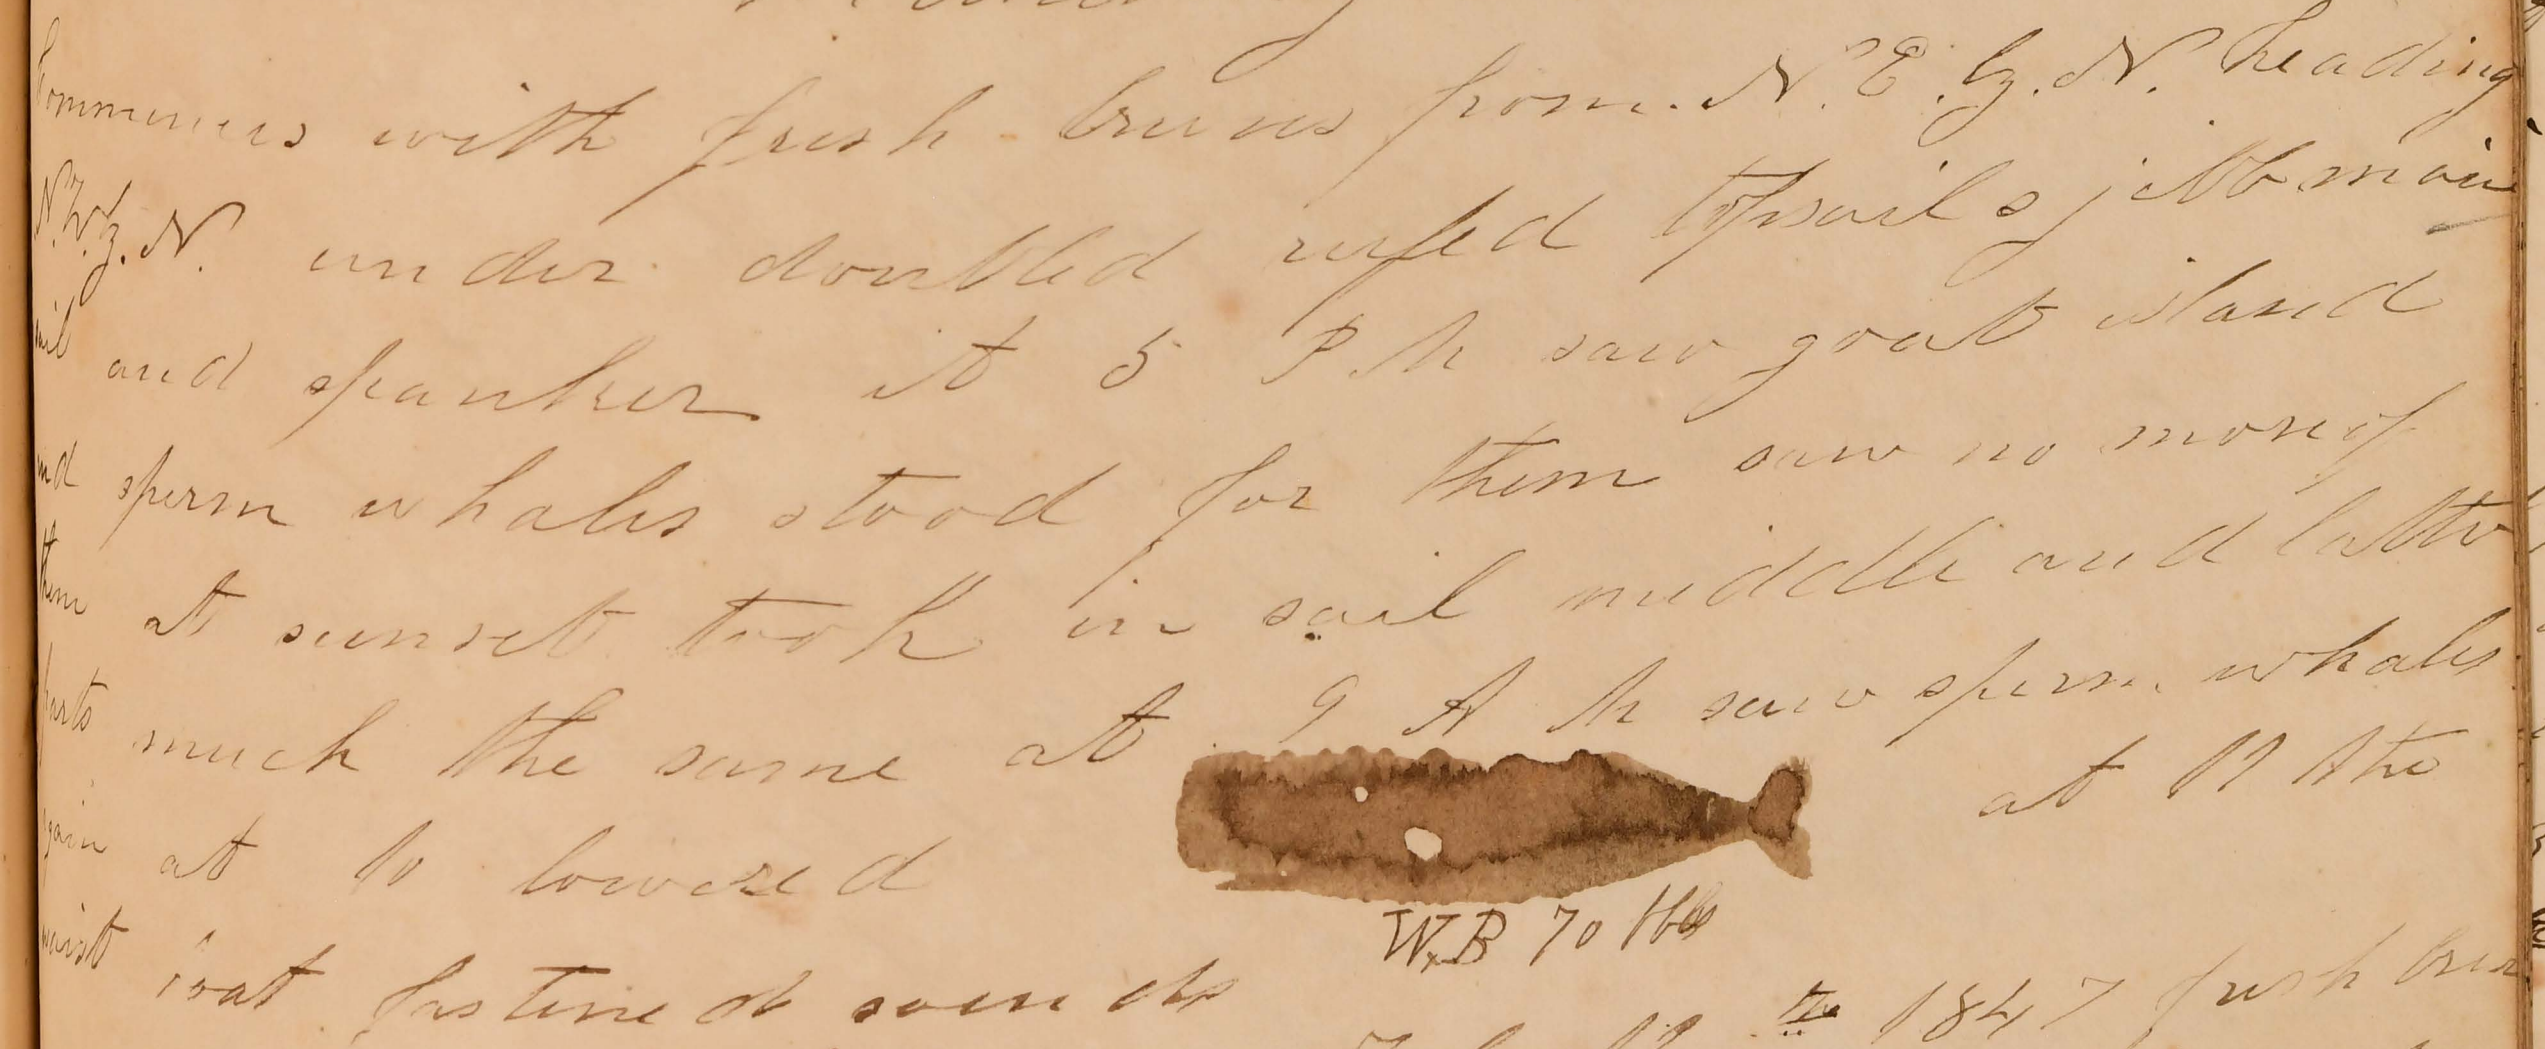 Commences with fresh breezes from N.E. by. N. heading
N.W. by. N. under doubled reefed topsails jibb main
sail and spanker at 5 P M saw goat island
and sperm whales stood for them saw no more of
them at sunset took in sail middle and latter
parts much the same at 9 A M saw sperm whales
again at 10 lowered at 11 the
waist boat fastened
W.B 70 bbls
th 1847 fresh